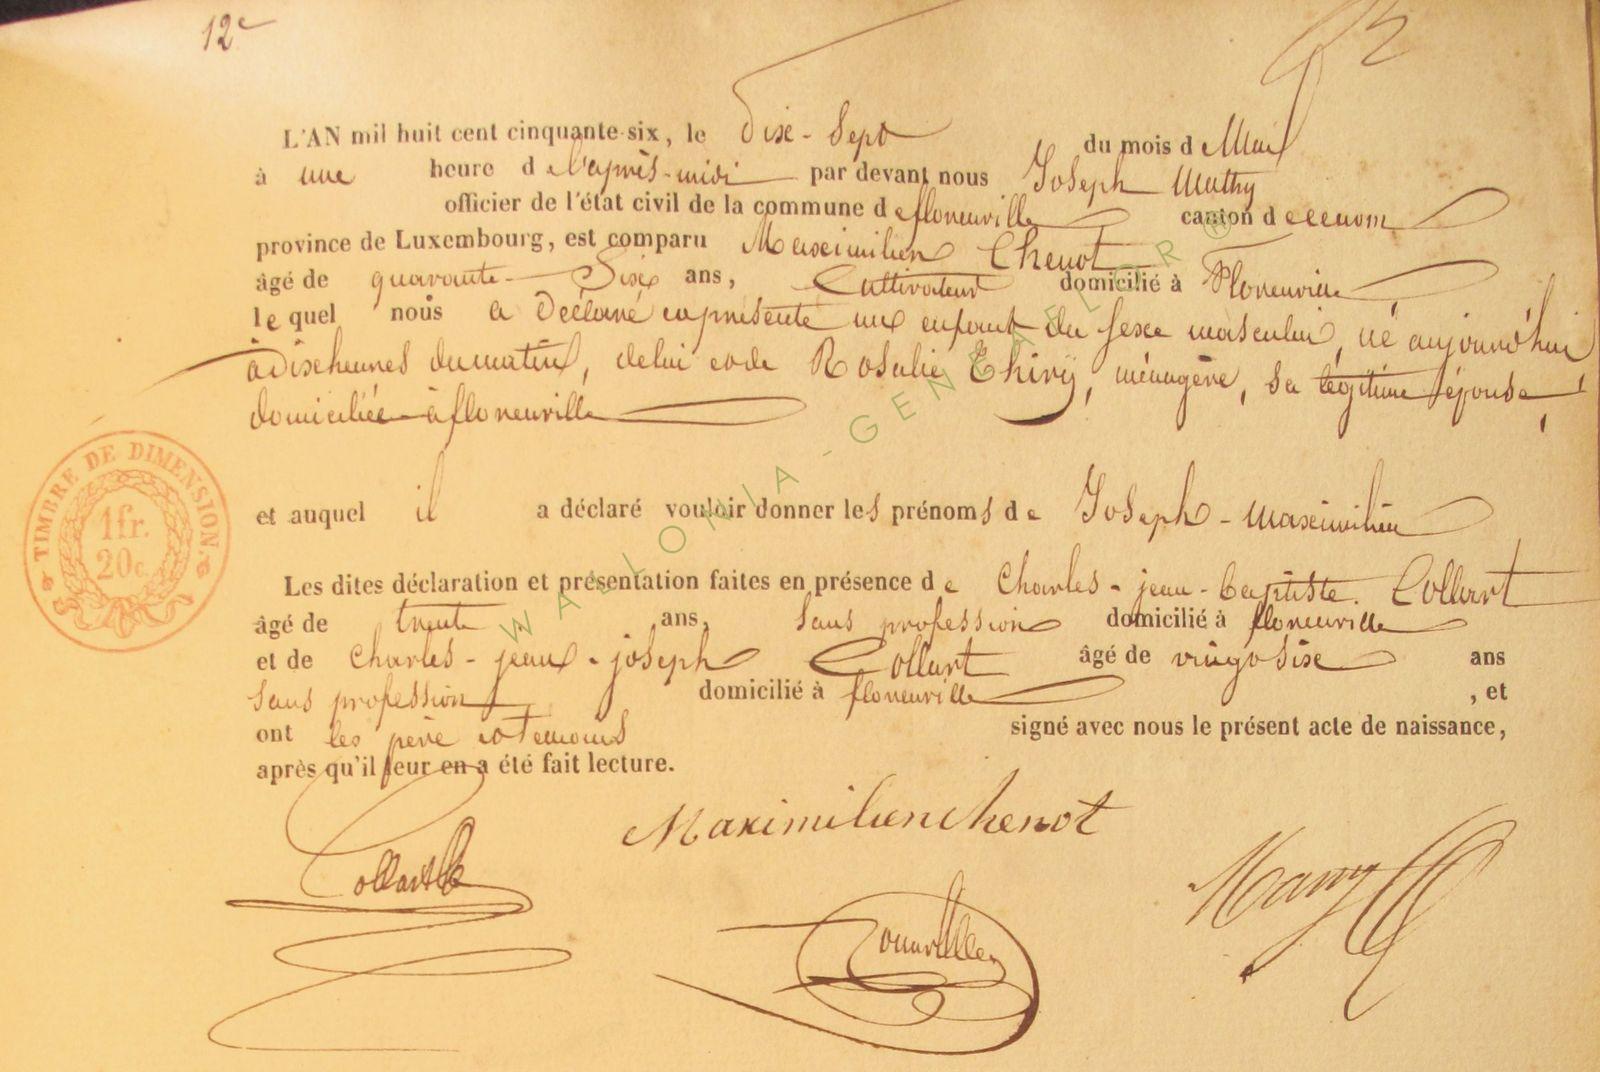 12e
L'AN mil huit cent cinquante-six, le dix-sept du mois de Mai
à une heure de l'après-midi par devant nous Joseph Mathy
officier de l'état civil de la commune de florenville canton de idem
province de Luxembourg, est comparu Maximilien Chenot
âgé de quarante-Six ans, Cultivateur domicilié à Florenville
lequel nous a déclaré et présenté un enfant du sexe masculin, né aujourd'hui
à dix heures du matin, de lui et de Rosalie Thiry, ménagère, sa légitime épouse,
domiciliée à florenville
et auquel il a déclaré vouloir donner les prénoms de Joseph-Maximilien
Les dites déclaration et présentation faites en présence de Charles-jean-baptiste Collart
âgé de trente ans, sans profession domicilié à florenville
et de Charles-jean-joseph Collart âgé de vingt six ans
sans profession domicilié à florenville, et
ont les père et témoins signé avec nous le présent acte de naissance,
après qu'il leur en a été fait lecture.
Maximilien chenot
TIMBRE DE DIMENSION.
1fr.
20c.
WALLONIA-GENEALOR©